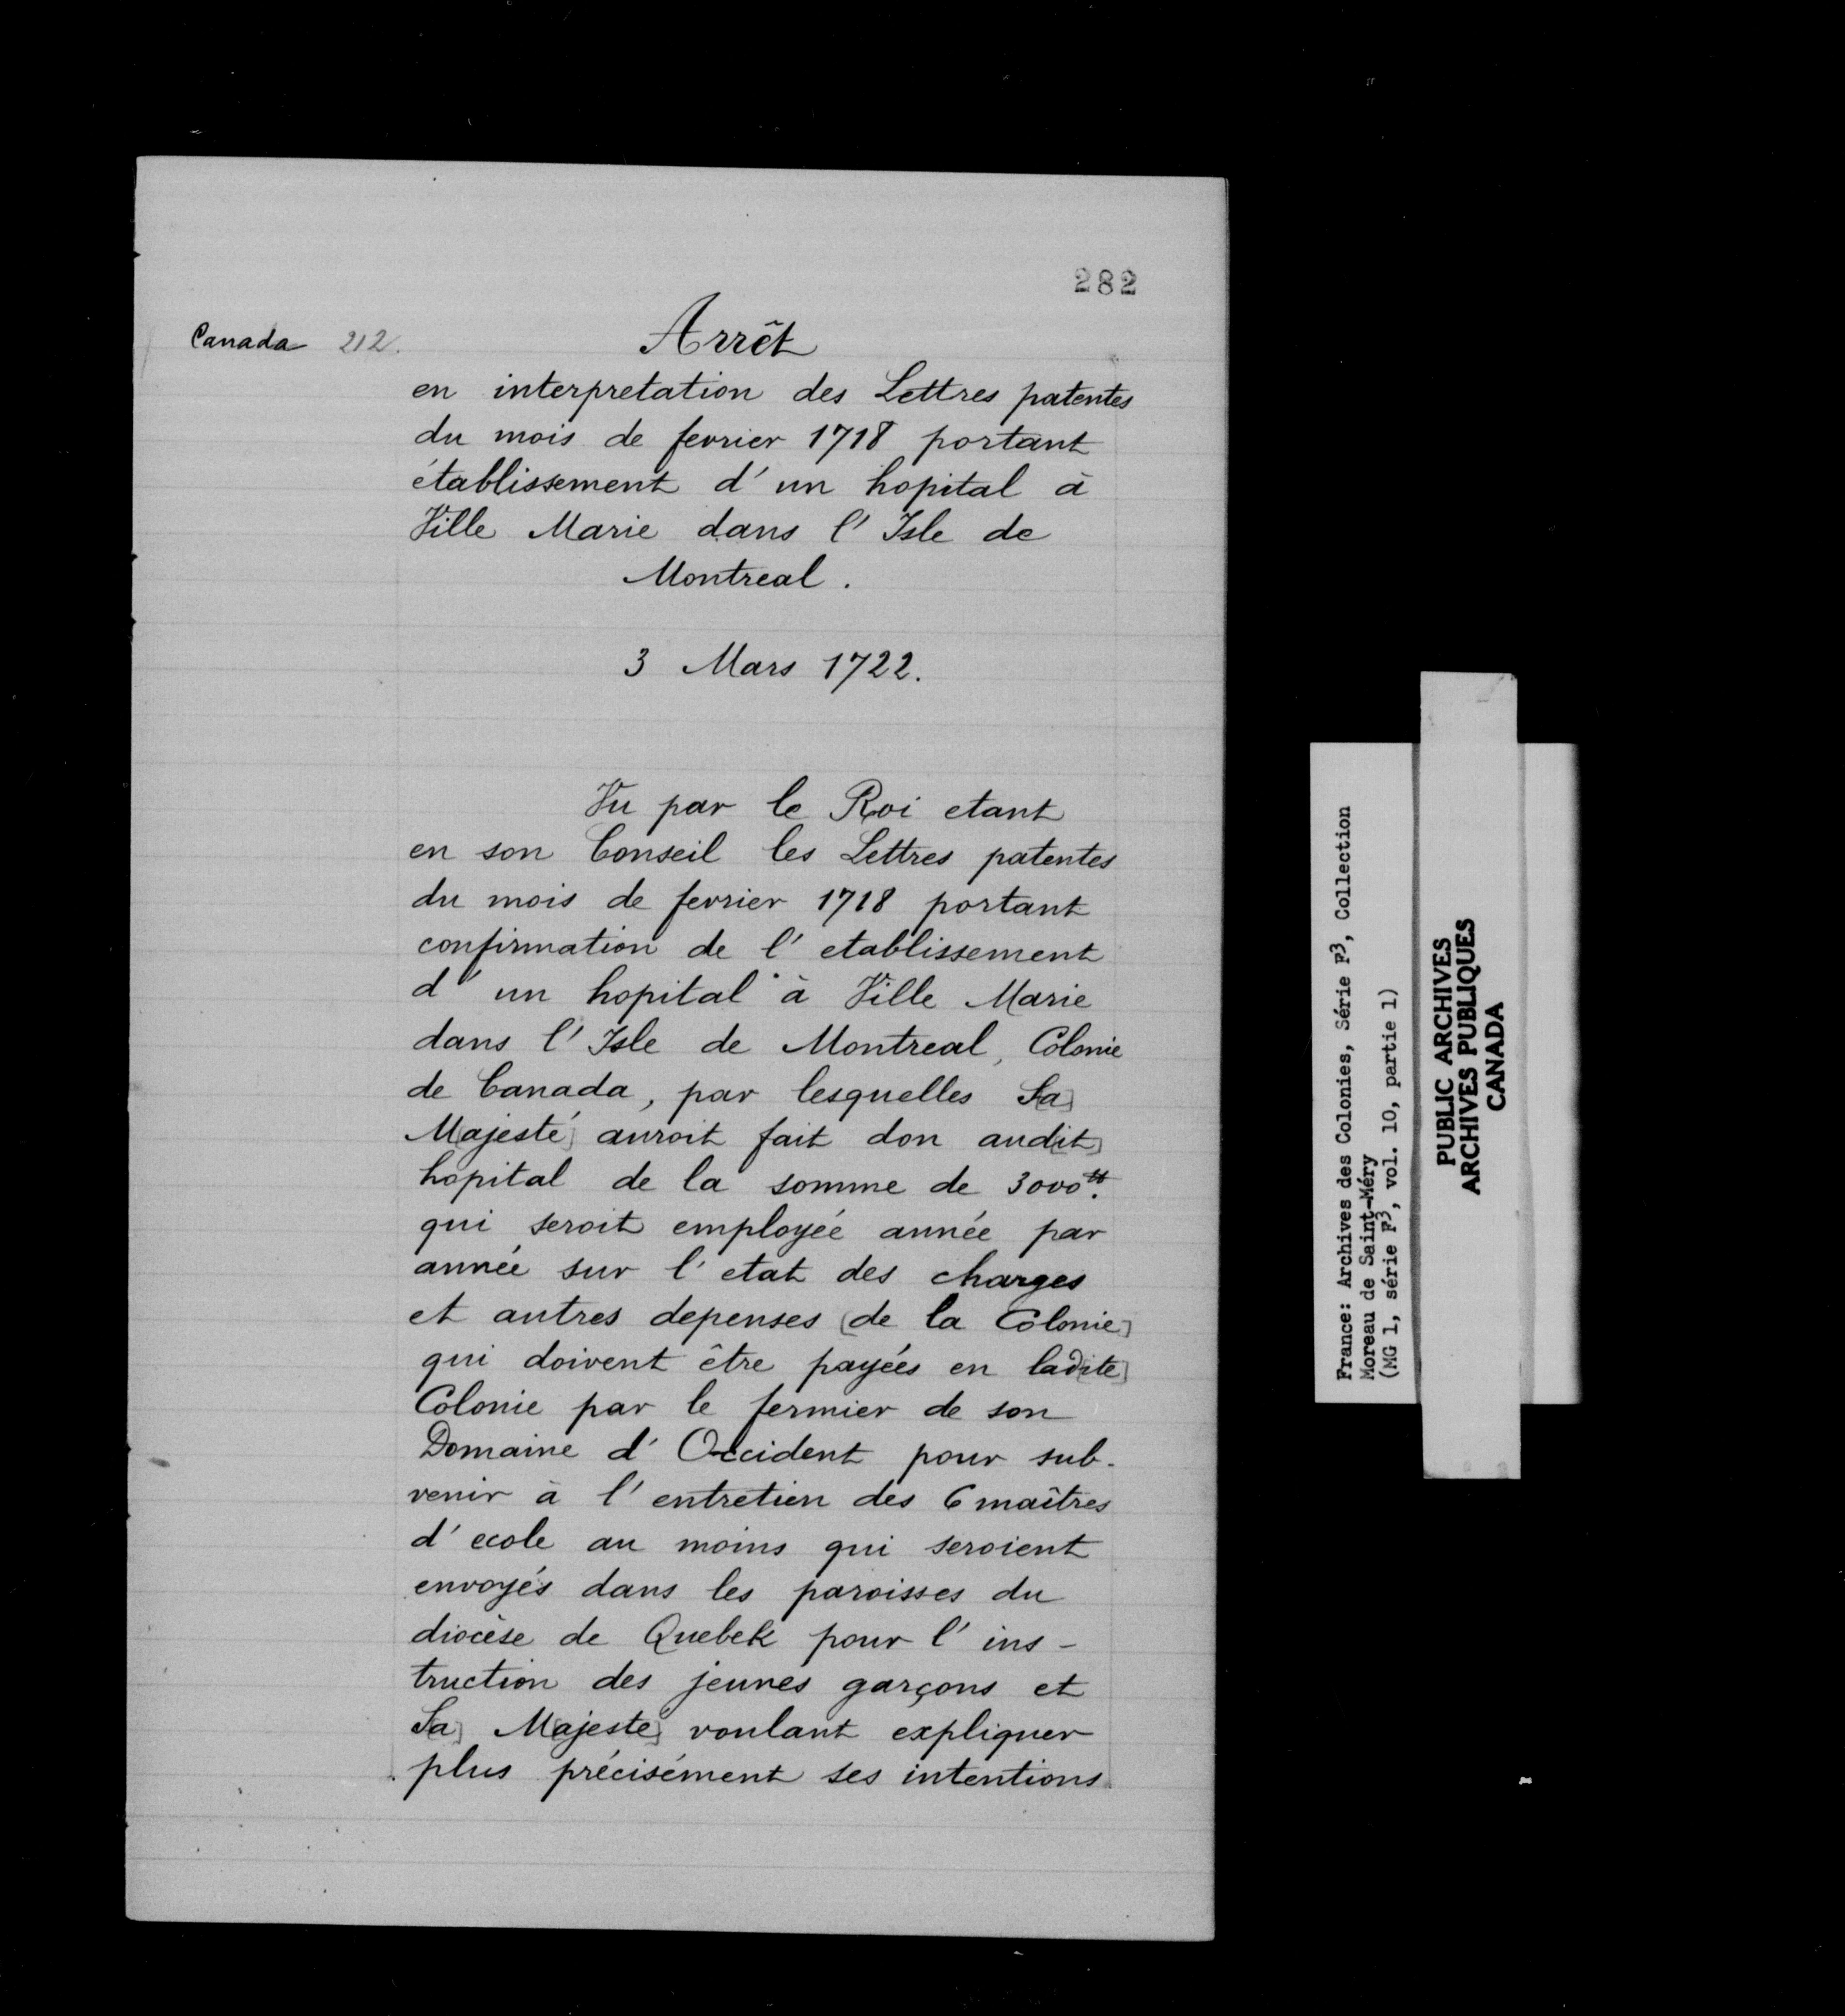 282
Canada 212.
Arrêt
en interpretation des Lettres patentes
du mois de fevrier 1718 portant
établissement d'un hopital à
Ville Marie dans l'Isle de
Montreal.
3 Mars 1722.
Vu par le Roi etant
en son Conseil les Lettres patentes
du mois de fevrier 1718 portant
confirmation de l'etablissement
d'un hopital à Ville Marie
dans l'Isle de Montreal, Colonie
de Canada, par lesquelles S[a]
M[ajesté] auroit fait don aud[it]
hopital de la somme de 3000tt.
qui seroit employée année par
année sur l'etat des charges
et autres depenses [de la Colonie]
qui doivent être payées en lad[ite]
Colonie par le fermier de son
Domaine d'Occident pour sub-
venir à l'entretien des 6 maîtres
d'ecole au moins qui seroient
envoyés dans les paroisses du
diocèse de Quebek pour l'ins-
truction des jeunes garçons et
S[a] M[ajesté] voulant expliquer
plus précisément ses intentions
France: Archives des Colonies, Série F3, Collection
Moreau de Saint-Méry
(MG 1, série F3, vol. 10, partie 1)
PUBLIC ARCHIVES
ARCHIVES PUBLIQUES
CANADA